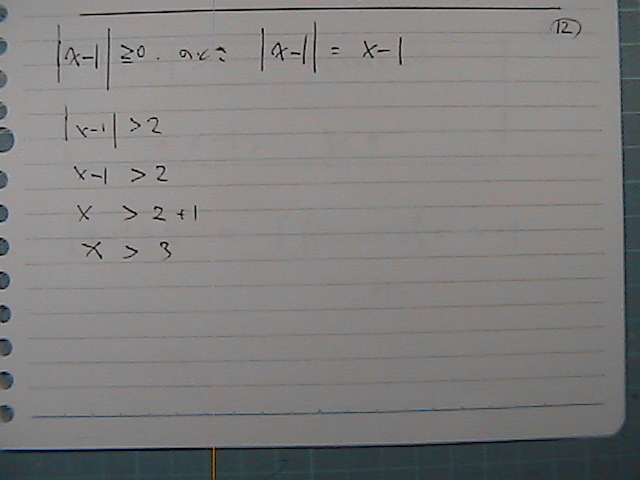 |x-1| ≥ 0. |x-1| = x-1 (12)
|x-1| > 2
x-1 > 2
x > 2+1
x > 3